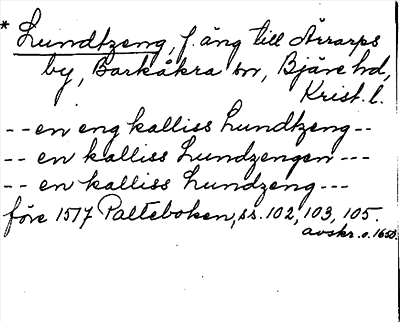 * Lundtzeng, f. äng till Ärrarps
by, Barkåkra sn, Bjäre hd,
Krist. l.
-- en eng kalliss Lundtzeng --
-- en kalliss Lundzengen ---
-- en kalliss Lundzeng ---
före 1517 Palteboken, ss. 102, 103, 105.
avskr. o. 1650.